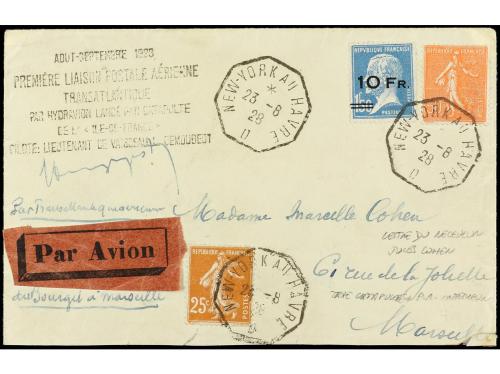 AOUT-SEPTEMBRE 1928
PREMIÈRE LIAISON POSTALE AÉRIENNE
TRANSATLANTIQUE
PAR HYDRAVION LANCÉ PAR CATAPULTE
DE L'"ILE-DE-FRANCE"
PILOTE: LIEUTENANT DE VAISSEAU DEMOUGEOT
NEW-YORK AU HAVRE
*
23 -8
28
D
REPUBLIQUE FRANÇAISE
10 FR.
1F50
REPUBLIQUE FRANÇAISE
NEW-YORK AU HAVRE
23 -8
28
D
Par Avion
du Bourget à Marseille
REPUBLIQUE FRANÇAISE
25c
POSTES
NEW-YORK AU HAVRE
-8
28
Madame Marcelle Cohen
61 rue de la Joliette
Marseille